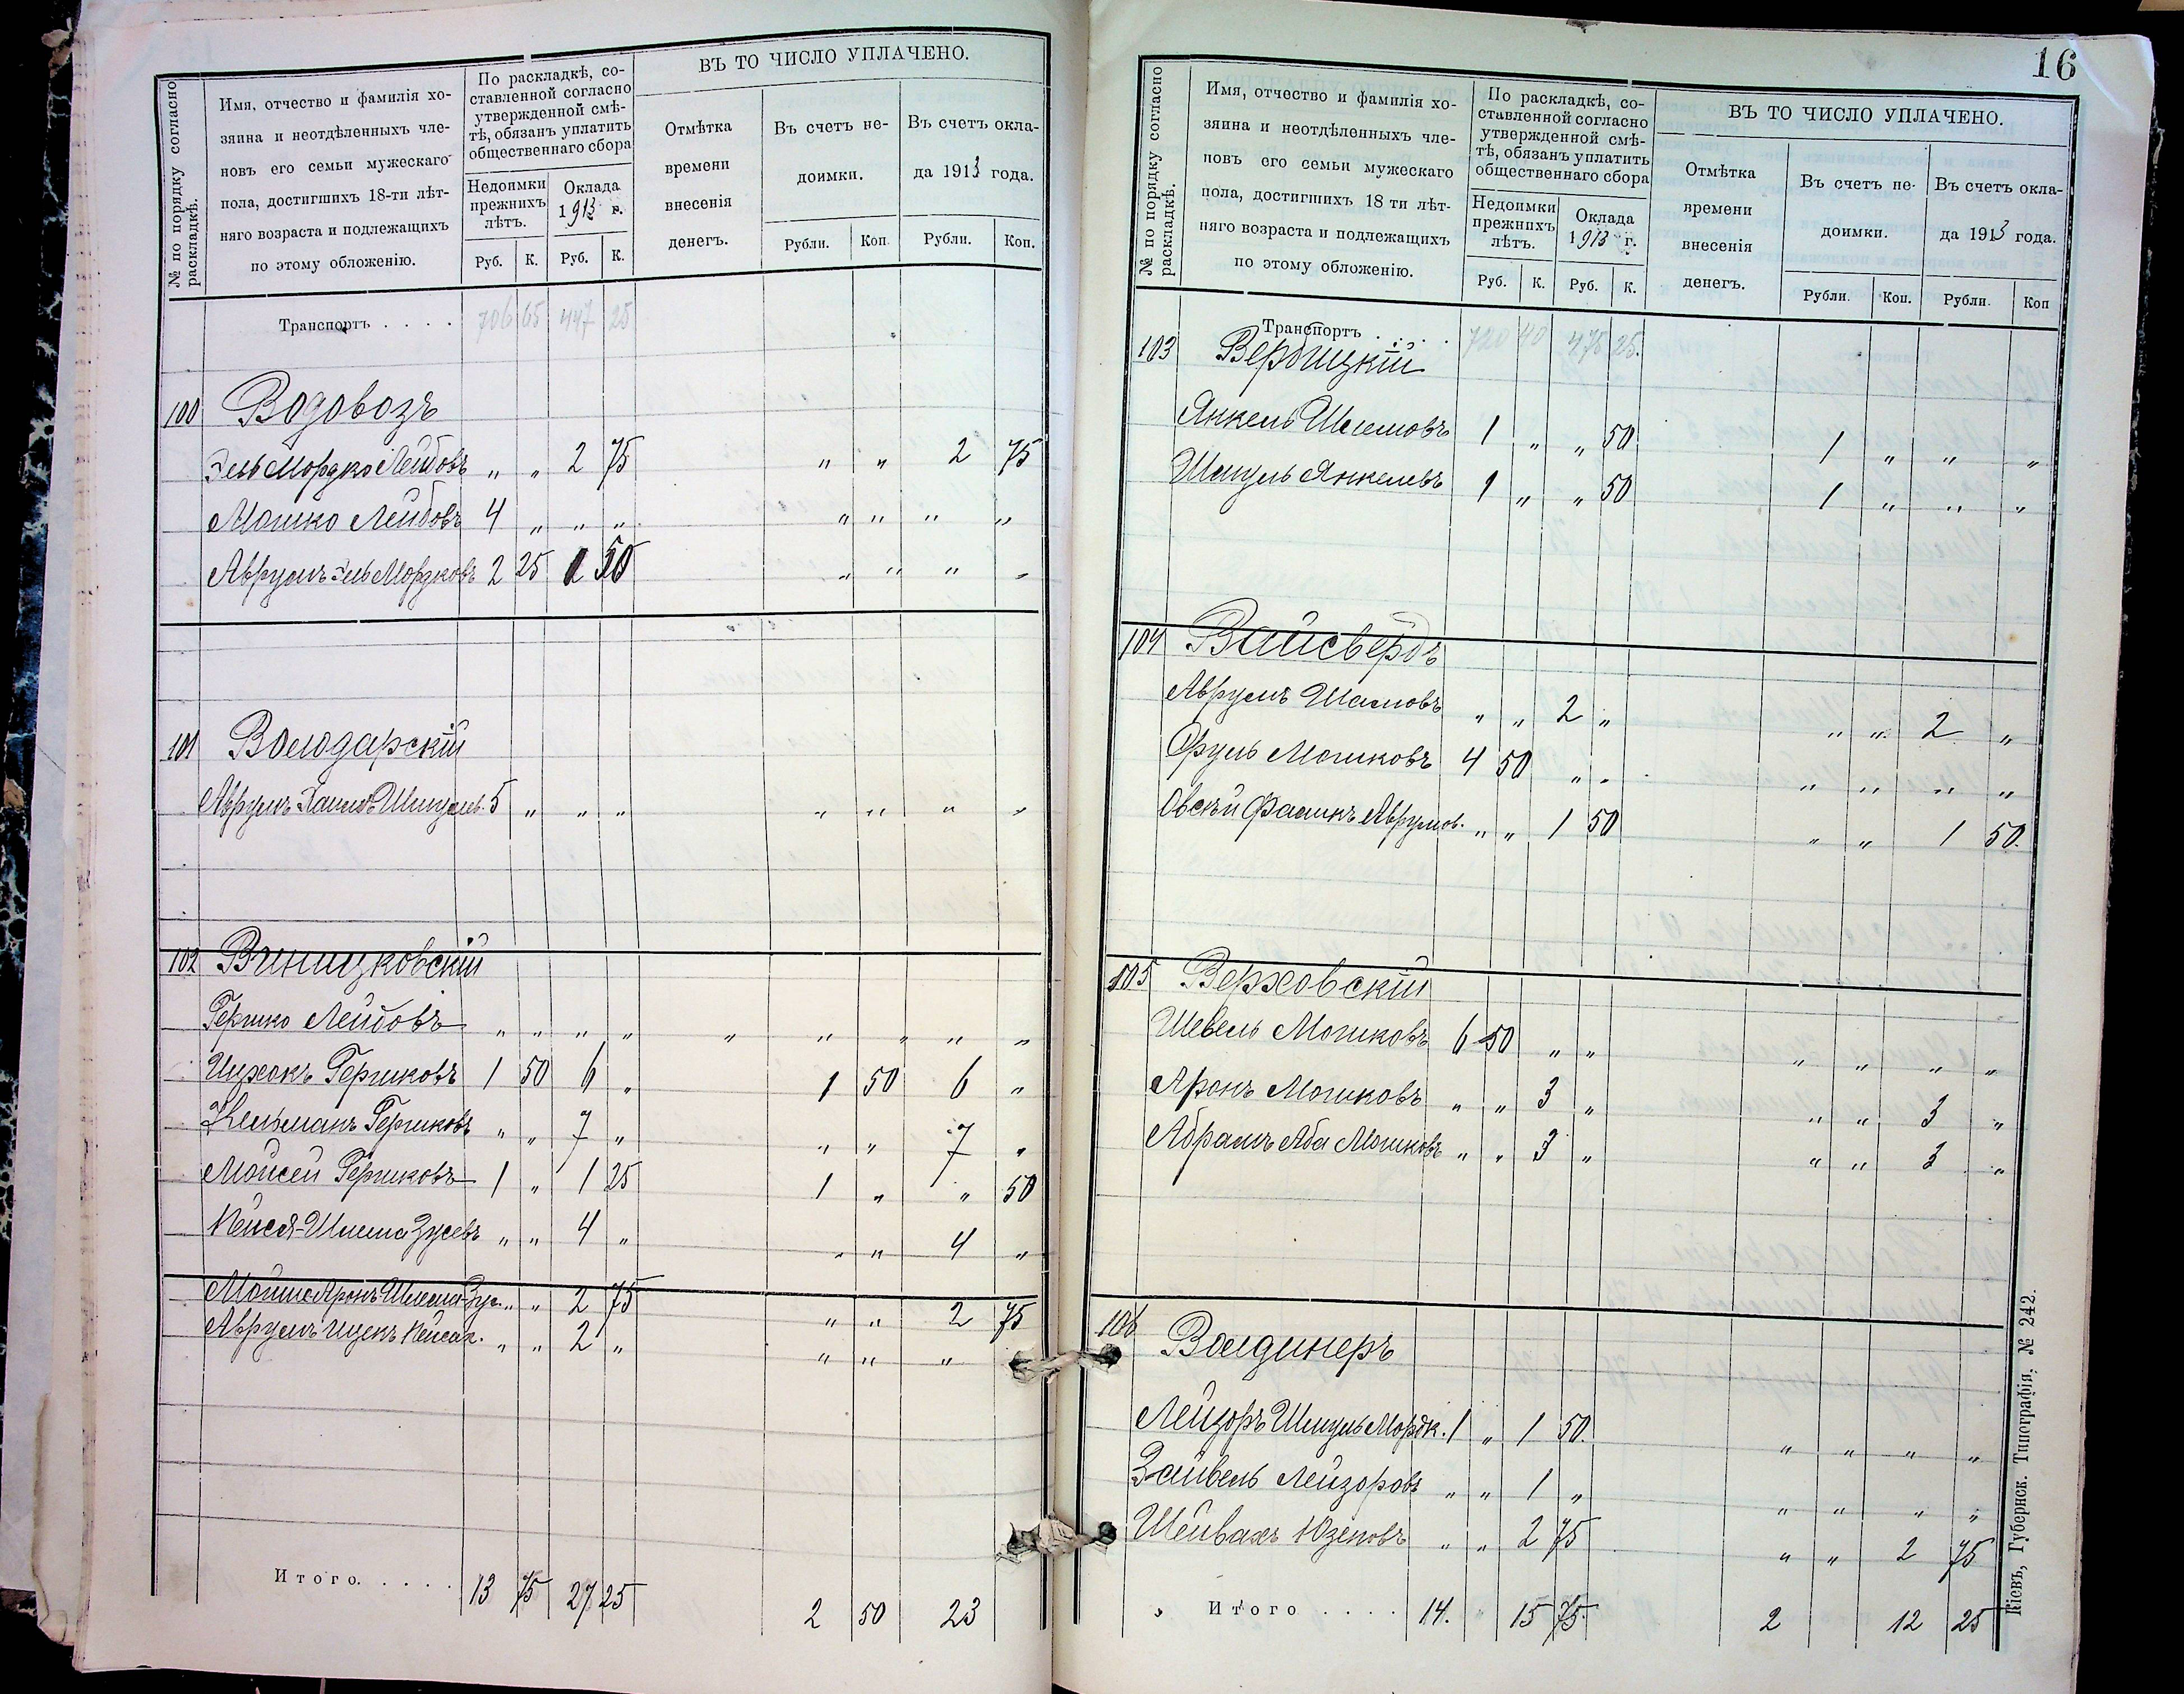 № по порядку согласно раскладкѣ.
Имя, отчество и фамилія хо-
зяина и неотдѣленныхъ чле-
новъ его семьи мужескаго
пола, достигшихъ 18-ти лѣт-
няго возраста и подлежащихъ
по этому обложенію.
По раскладкѣ, со-
ставленной согласно
утвержденной смѣ-
тѣ, обязанъ уплатить
общественнаго сбора
Недоимки прежнихъ лѣтъ.
Оклада 1913 г.
Руб. К. Руб. К.
ВЪ ТО ЧИСЛО УПЛАЧЕНО.
Отмѣтка времени внесенія денегъ.
Въ счетъ не-доимки.
Въ счетъ окла-да 1913 года.
Рубли. Коп. Рубли. Коп.
Транспортъ . . . . 706 65 447 25
100 Водовозъ
Эль Мордко Лейбовъ „ „ 2 75 „ „ 2 75
Мошко Лейбовъ 4 „ „ „ „ „ „ „
Аврумъ Эль Мордковъ 2 25 1 50 „ „ „ „
101 Володарскій
Аврумъ Хаимъ Шмулъ 5 „ „ „ „ „ „ „
102 Виницковскій
Гершко Лейбовъ „ „ „ „ „ „ „ „ „
Ицхокъ Гершковъ 1 50 6 „ 1 50 6 „
Кельманъ Гершковъ „ „ 7 „ „ „ 7 „
Мойсей Гершковъ 1 „ 1 25 1 „ „ 50
Кейся-Шлема Зусевъ „ „ 4 „ „ „ 4 „
Мойше Аронъ Шлема-Зус. „ „ 2 75 „ „ 2 75
Аврумъ Ицекъ Кейсах. „ „ 2 „ „ „ „
Итого. . . . . 13 75 27 25 2 50 23
16
№ по порядку согласно раскладкѣ.
Имя, отчество и фамилія хо-
зяина и неотдѣленныхъ чле-
новъ его семьи мужескаго
пола, достигшихъ 18 ти лѣт-
няго возраста и подлежащихъ
по этому обложенію.
По раскладкѣ, со-
ставленной согласно
утвержденной смѣ-
тѣ, обязанъ уплатить
общественнаго сбора
Недоимки прежнихъ лѣтъ.
Оклада 1913 г.
Руб. К. Руб. К.
ВЪ ТО ЧИСЛО УПЛАЧЕНО.
Отмѣтка времени внесенія денегъ.
Въ счетъ не-доимки.
Въ счетъ окла-да 1913 года.
Рубли. Коп. Рубли. Коп
Транспортъ . . . . 720 40 475 25.
103 Вербицкій
Янкель Шлемовъ 1 „ „ 50 1 „ „ „
Шмуль Янкелевъ 1 „ „ 50 1 „ „ „
104 Вайсбердъ
Аврумъ Шамовъ „ „ 2 „ „ „ 2 „
Сруль Мошковъ 4 50 „ „ „ „ „ „
Овсѣй Фаликъ Аврумов. „ „ 1 50 „ „ 1 50.
105 Верховскій
Шевель Мошковъ 6 50 „ „ „ „ „ „
Аронъ Мошковъ „ „ 3 „ „ „ 3 „
Абрамъ Аба Мошковъ „ „ 3 „ „ „ 3 „
106 Валдинеръ
Лейзоръ Шмуль Мордк. 1 „ 1 50. „ „ „ „
Зайвель Лейзоровъ „ „ 1 „ „ „ „ „
Шейвахъ Юзеповъ „ „ 2 75 „ „ 2 75
Итого . . . . 14. „ 15 75. 2 12 25
Кіевъ, Губернск. Типографія, № 242.